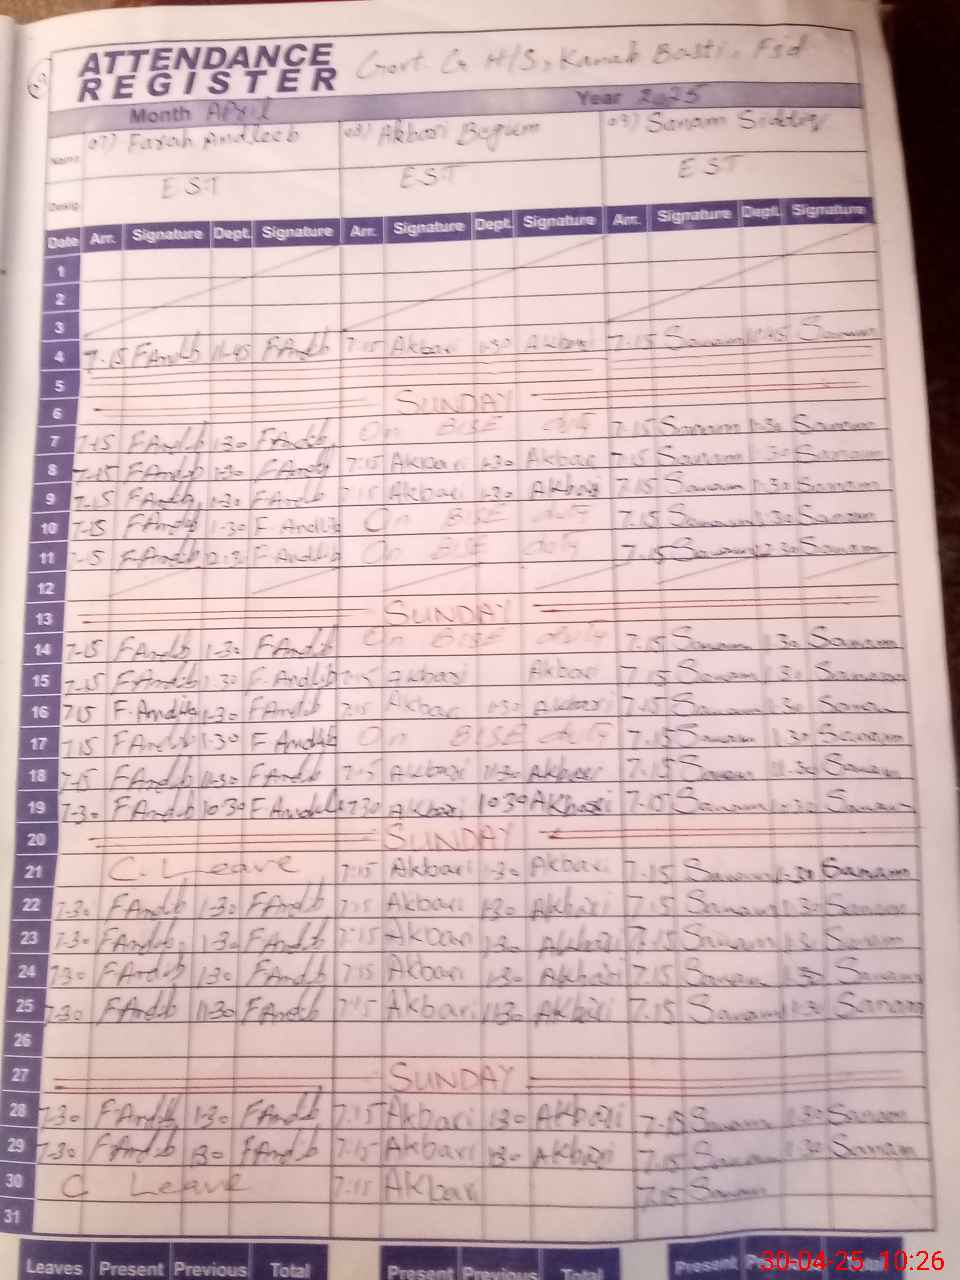 ATTENDANCE Govt. G H/S, Kanak Basti, Fsd
REGISTER
Month April Year 2025
Name 07) Farah Andleeb 08) Akbari Begum 09) Sanam Siddiq
Desig. EST EST EST
Date Arr. Signature Dept. Signature Arr. Signature Dept. Signature Arr. Signature Dept. Signature
1
2
3
4 7-15 FAndlb 11-45 FAndlb 7:15 Akbari Akbari 7-15 Sanam Sanam
5
6 SUNDAY
7 7-15 FAndlb 1-30 FAndlb On BISE duty 7-15 Sanam 1-30 Sanam
8 7-15 FAndlb 1-30 FAndlb 7:15 Akbari 1-30 Akbari 7-15 Sanam 1-30 Sanam
9 7-15 FAndlb 1-30 FAndlb 7:15 Akbari 1-30 Akbari 7-15 Sanam 1-30 Sanam
10 7-15 FAndlb 1-30 F. Andlib On BISE duty 7-15 Sanam 1-30 Sanam
11 7-15 F.Andlb F-Andlib On BISE duty 7-15 Sanam Sanam
12
13 SUNDAY
14 7-15 FAndlb 1-30 FAndlb On BISE duty 7-15 Sanam 1-30 Sanam
15 7-15 FAndlb 1-30 F. Andlib 7:15 Akbari Akbari 7-15 Sanam 1-30 Sanam
16 715 F. Andlib 1-30 FAndlb 7:15 Akbari 1-30 Akbari 7-15 Sanam 1-30 Sanam
17 715 FAndlb 1-30 F Andlib On BISE duty 7-15 Sanam 1-30 Sanam
18 7-15 FAndlb 11-30 FAndlb 7:15 Akbari 11-30 Akbari 7-15 Sanam 11-30 Sanam
19 7-30 FAndlb 10-30 FAndlb 730 Akbari 10 30 Akbari 7-15 Sanam Sanam
20 SUNDAY
21 C. Leave 7:15 Akbari 1-30 Akbari 7-15 Sanam 1-30 Sanam
22 7-30 FAndlb 1-30 FAndlb 7:15 Akbari 1-30 Akbari 7-15 Sanam 1-30 Sanam
23 7-30 FAndlb 1-30 FAndlb 7:15 Akbari 1-30 Akbari 7-15 Sanam 1-30 Sanam
24 730 FAndlb 1-30 FAndlb 7:15 Akbari 1-30 Akbari 7-15 Sanam 1-30 Sanam
25 7-30 FAndlb 11-30 FAndlb 7:15 Akbari 11-30 Akbari 7-15 Sanam 11-30 Sanam
26
27 SUNDAY
28 7-30 FAndlb 1-30 FAndlb 7:15 Akbari 1-30 Akbari 7-15 Sanam 1-30 Sanam
29 7-30 FAndlb 1-30 FAndlb 7:15 Akbari 1-30 Akbari 7-15 Sanam 1-30 Sanam
30 C Leave 7:15 Akbari 7-15 Sanam
31
Leaves Present Previous Total Present Previous Total Present Total
30-04-25 10:26